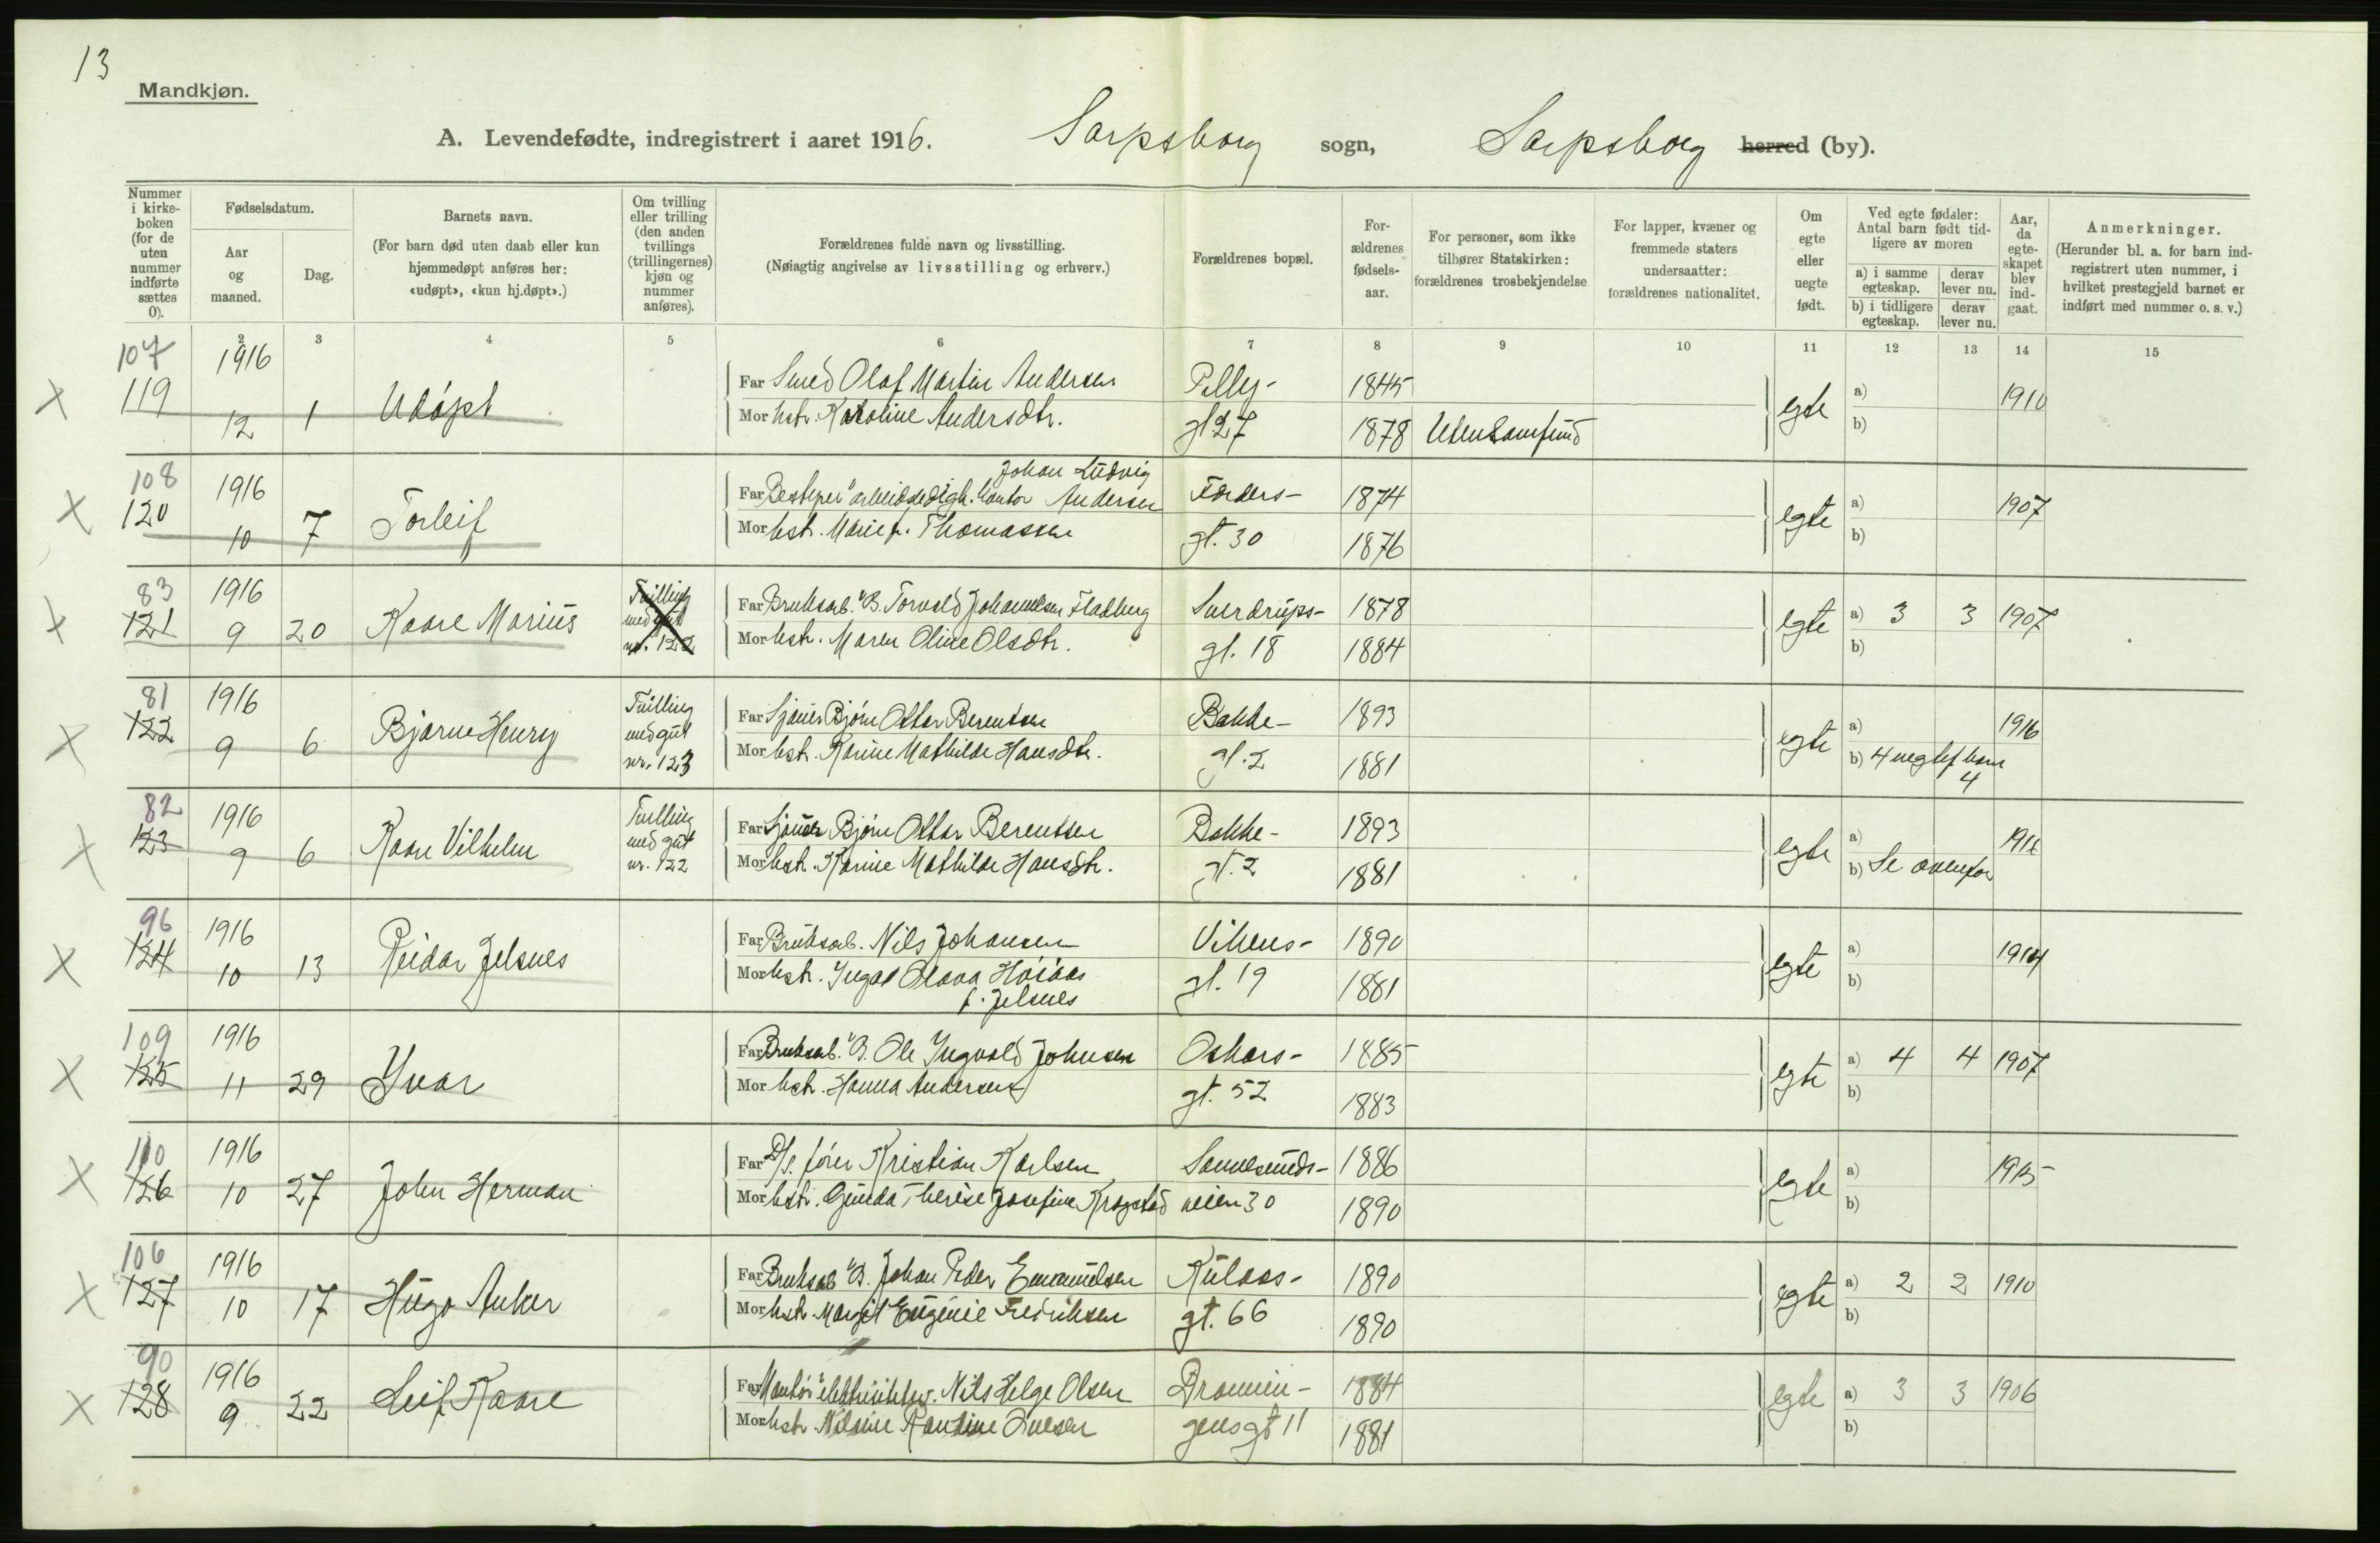 13
Mandkjøn.
A. Levendefødte, indregistrert i aaret 1916. Sarpsborg sogn, Sarpsborg herred (by).
Nummer i kirke-boken (for de uten nummer indførte sættes 0).
Fødselsdatum.
Aar og maaned.
Dag.
Barnets navn.
(For barn død uten daab eller kun hjemmedøpt anføres her: «udøpt», «kun hj.døpt».)
Om tvilling eller trilling (den anden tvillings (trillingernes) kjøn og nummer anføres).
Forældrenes fulde navn og livsstilling.
(Nøiagtig angivelse av livsstilling og erhverv.)
Forældrenes bopæl.
For-ældrenes fødsels-aar.
For personer, som ikke tilhører Statskirken: forældrenes trosbekjendelse
For lapper, kvæner og fremmede staters undersaatter: forældrenes nationalitet.
Om egte eller uegte født.
Ved egte fødsler: Antal barn født tid-ligere av moren
a) i samme egteskap.
derav lever nu.
b) i tidligere egteskap.
derav lever nu.
Aar, da egte-skapet blev ind-gaat.
Anmerkninger.
(Herunder bl. a. for barn ind-registrert uten nummer, i hvilket prestegjeld barnet er indført med nummer o. s. v.)
2 3 4 5 6 7 8 9 10 11 12 13 14 15
107 1916 Far Smed Olaf Martin Andersen 1845
X 119 12 1 Udøpt egte a) 1910
Mor hstr. Karoline Andersdtr. gt 27 1878 Uten samfund b)
108 1916 Johan Ludvig
Far arbeidsledigh. kontor Andersen Færders- 1874
X 120 10 7 Torleif egte a) 1907
Mor hstr. Marie f. Thomassen gt. 30 1876 b)
83 1916 Tvilling med gut nr. 122 Far Bruksarb. "B. Torvald Johannesen Fladberg Sverdrups- 1878
X 121 9 20 Kaare Marius egte a) 3 3 1907
Mor hstr. Maren Oline Olsdtr. gt. 18 1884 b)
81 1916 Tvilling med gut nr. 123 Far Sjauer Bjørn Ottar Berentsen Bakke- 1893
X 122 9 6 Bjarne Henry egte a) 1916
Mor hstr. Karine Mathilde Hansdtr. gt. 2 1881 b) 4 uegtef barn 4
82 1916 Tvilling med gut nr. 122 Far Sjauer Bjørn Ottar Berentsen Bakke- 1893
X 123 9 6 Kaare Vilhelm egte a) 1916
Mor hstr. Karine Mathilde Hansdtr. gt. 2 1881 b) Se ovenfor
96 1916 Far Bruksarb. Nils Johansen Vikens- 1890
X 124 10 13 Reidar Jelsnes egte a) 1914
Mor hstr. Olava f. Jelsnes gt. 19 1881 b)
109 1916 Far Bruksarb. "B. Ole Ingvald Johnsen Oskars- 1885
X 125 11 29 Ivar egte a) 4 4 1907
Mor hstr. Hanna Andersen gt. 52 1883 b)
110 1916 Far D/s. fører Kristian Karlsen Sannesunds- 1886
X 126 10 27 John Herman egte a) 1915
Mor hstr. Gunda Therese Josefine Krogstad veien 30 1890 b)
106 1916 Far Bruksarb "B. Johan Peder Emanuelsen Kulaas- 1890
X 127 10 17 Hugo Anker egte a) 2 2 1910
Mor hstr. Margit Eugenie Fredriksen gt. 66 1890 b)
90 1916 Far Montør Nils Helge Olsen Dronnin- 1884
X 128 9 22 Leif Kaare egte a) 3 3 1906
Mor hstr. gens gt 11 1881 b)